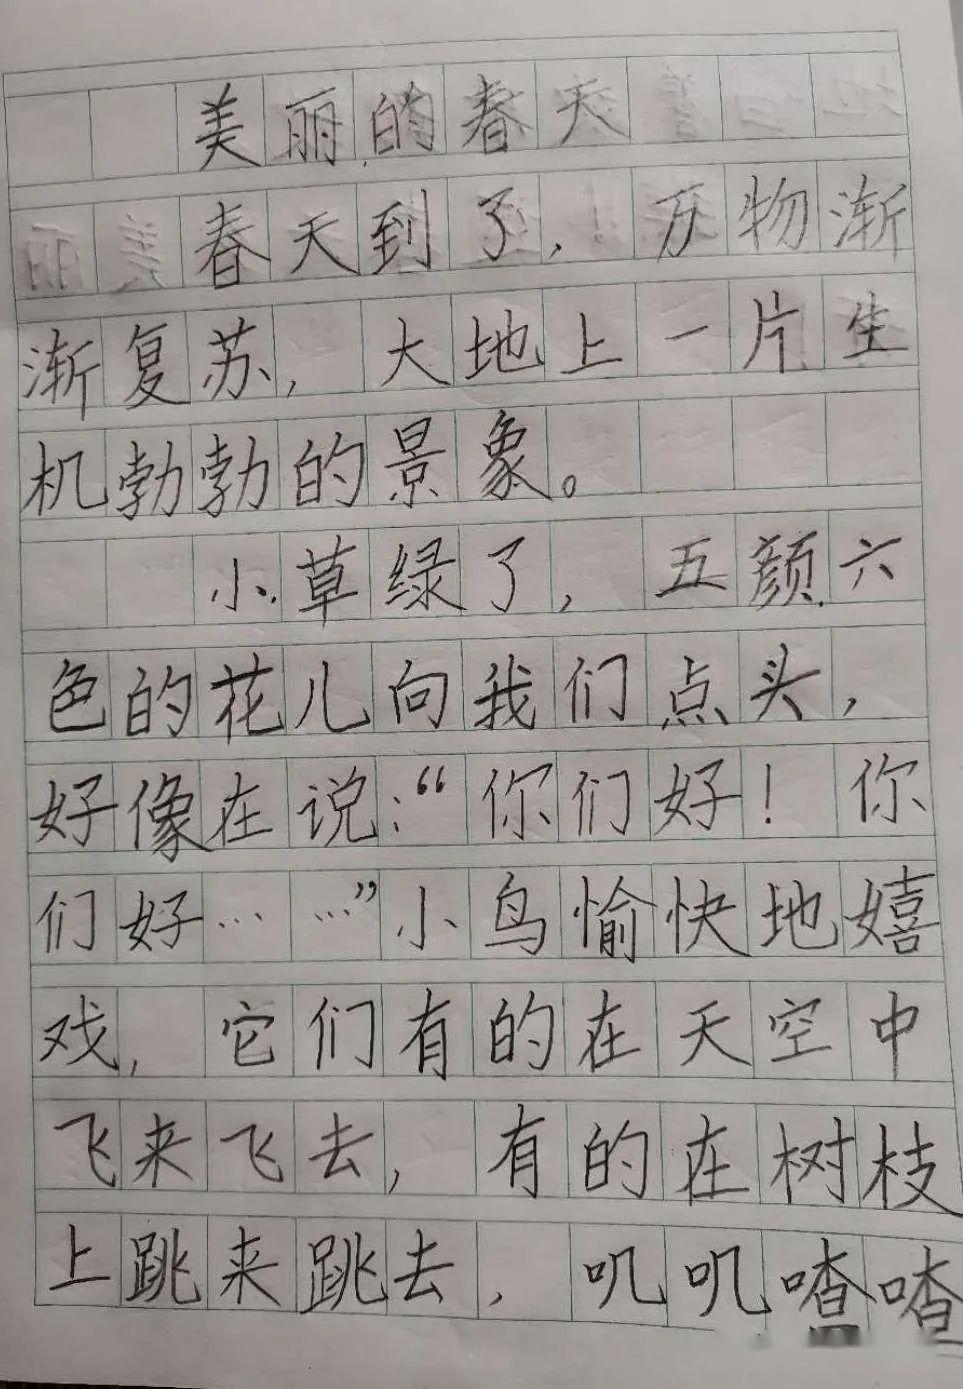 美丽的春天
春天到了，万物渐
渐复苏，大地上一片生
机勃勃的景象。
小草绿了，五颜六
色的花儿向我们点头，
好像在说：“你们好！你
们好……”小鸟愉快地嬉
戏，它们有的在天空中
飞来飞去，有的在树枝
上跳来跳去，叽叽喳喳